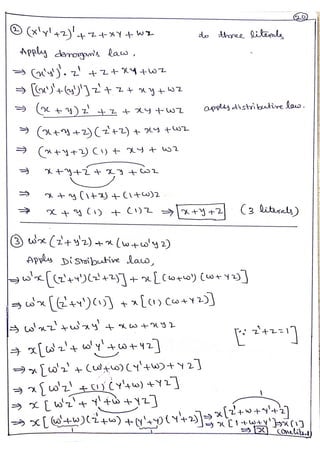 20
② (x'y'+z)' + z + xy + wz to three literals
Apply demorgan's law.
⇒ (x'y')'. z' + z + xy + wz
⇒ [(x')' + (y')'] z' + z + xy + wz
⇒ (x + y) z' + z + xy + wz apply distributive law.
⇒ (x+y+z)(z'+z) + xy + wz
⇒ (x+y+z)(1) + xy + wz
⇒ x+y+z + xy + wz
⇒ x + y(1+x) + (1+w)z
⇒ x + y(1) + (1)z ⇒ x+y+z (3 literals)
③ w'x(z'+y'z) + x(w+w'yz)
Apply Distributive law,
⇒ w'x[(z'+y')(z'+z)] + x[(w+w')(w+yz)]
⇒ w'x[(z'+y')(1)] + x[(1)(w+yz)]
⇒ w'xz' + w'xy' + xw + xyz [∵ z'+z=1]
⇒ x[w'z' + w'y' + w + yz]
⇒ x[w'z' + (w'+w)(y'+w) + yz]
⇒ x[w'z' + (1)(y'+w) + yz]
⇒ x[w'z' + y'+w + yz]
⇒ x[(w'+w)(z'+w) + (y'+y)(y'+z)] ⇒ x[z'+w+y'+z]
⇒ x[1+w+y'] ⇒ x(1)
⇒ x